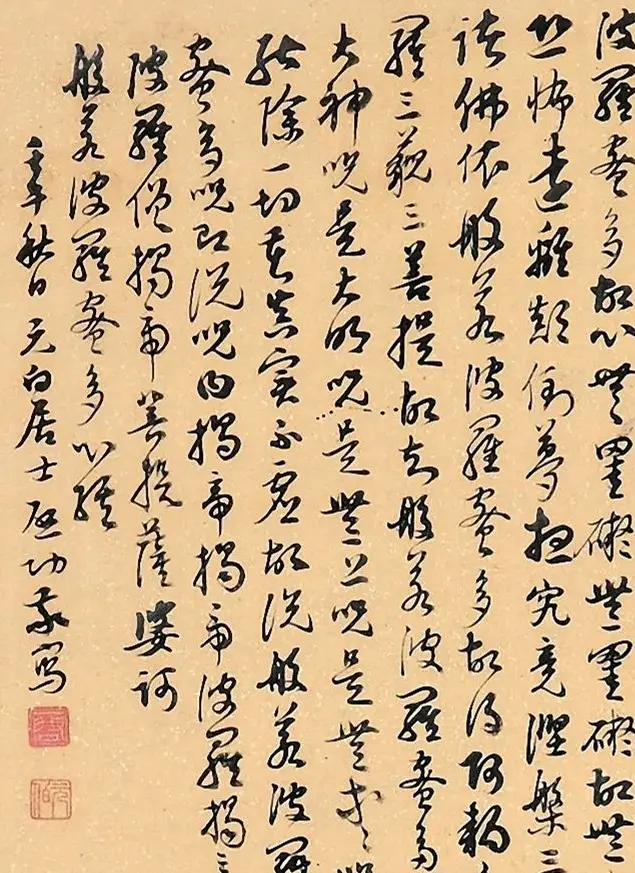 波羅蜜多故心無罣礙無罣礙故無
恐怖遠離顛倒夢想究竟涅槃三
諸佛依般若波羅蜜多故得阿耨
羅三藐三菩提故知般若波羅蜜多
大神呪是大明呪是無上呪是無等等呪
能除一切苦真實不虛故說般若波羅
蜜多呪即說呪曰揭帝揭帝波羅揭
波羅僧揭帝菩提薩婆訶
般若波羅蜜多心經
壬午秋日元白居士啟功敬寫